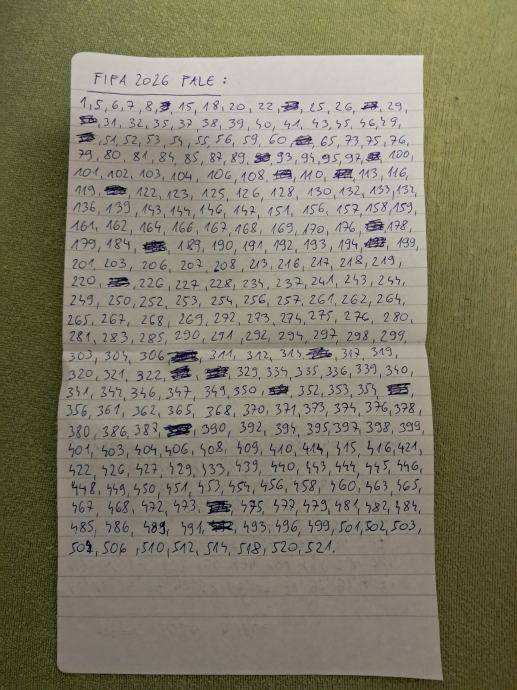 FIFA 2026 PALE :
1, 5, 6, 7, 8, 15, 18, 20, 22, 25, 26, 29,
31, 32, 35, 37, 38, 39, 40, 41, 43, 45, 46, 49,
51, 52, 53, 54, 55, 56, 59, 60, 65, 73, 75, 76,
79, 80, 81, 84, 85, 87, 89, 93, 94, 95, 97, 100,
101, 102, 103, 104, 106, 108, 110, 113, 116,
119, 122, 123, 125, 126, 128, 130, 132, 133, 134,
136, 139, 143, 144, 146, 147, 151, 156, 157, 158, 159,
161, 162, 164, 166, 167, 168, 169, 170, 176, 178,
179, 184, 189, 190, 191, 192, 193, 194, 199,
201, 203, 206, 207, 208, 213, 216, 217, 218, 219,
220, 226, 227, 228, 234, 237, 241, 243, 244,
249, 250, 252, 253, 254, 256, 257, 261, 262, 264,
265, 267, 268, 269, 272, 273, 274, 275, 276, 280,
281, 283, 285, 290, 291, 292, 294, 297, 298, 299,
303, 304, 306, 311, 312, 314, 317, 319,
320, 321, 322, 329, 334, 335, 336, 339, 340,
341, 344, 346, 347, 349, 350, 352, 353, 354,
356, 361, 362, 365, 368, 370, 371, 373, 374, 376, 378,
380, 386, 387, 390, 392, 394, 395, 397, 398, 399,
401, 403, 404, 406, 408, 409, 410, 414, 415, 416, 421,
422, 426, 427, 429, 433, 439, 440, 443, 444, 445, 446,
448, 449, 450, 451, 453, 454, 456, 458, 460, 463, 465,
467, 468, 472, 473, 475, 477, 479, 481, 482, 484,
485, 486, 489, 491, 493, 496, 499, 501, 502, 503,
504, 506, 510, 512, 514, 518, 520, 521.